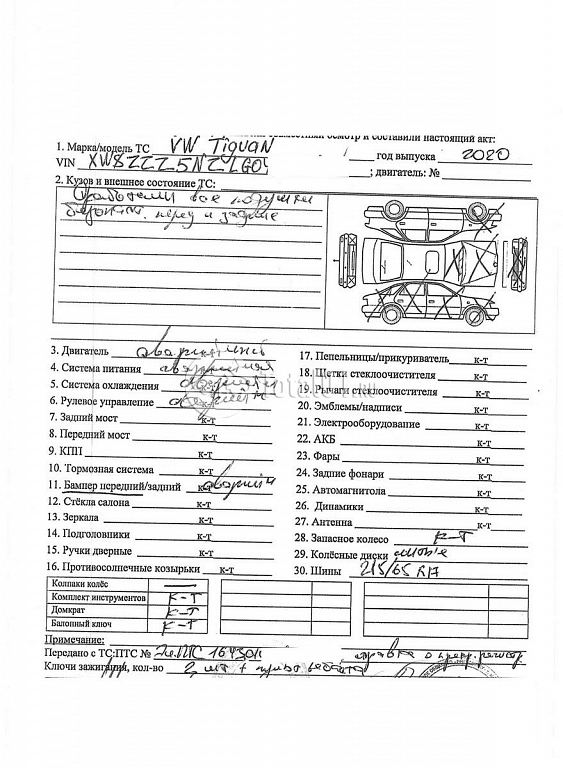 совместный осмотр и составили настоящий акт:
1. Марка/модель ТС VW TiguaN
год выпуска 2020
VIN XW8ZZZ5NZLG0
; двигатель: №
2. Кузов и внешнее состояние ТС:
все подушки
перед и задние
3. Двигатель аварийный
4. Система питания аварийная
5. Система охлаждения
6. Рулевое управление к-т
7. Задний мост к-т
8. Передний мост к-т
9. КПП к-т
10. Тормозная система к-т
11. Бампер передний/задний к-т
12. Стёкла салона к-т
13. Зеркала к-т
14. Подголовники к-т
15. Ручки дверные к-т
16. Противосолнечные козырьки к-т
17. Пепельницы/прикуриватель к-т
18. Щетки стеклоочистителя к-т
19. Рычаги стеклоочистителя к-т
20. Эмблемы/надписи к-т
21. Электрооборудование к-т
22. АКБ к-т
23. Фары к-т
24. Задние фонари к-т
25. Автомагнитола к-т
26. Динамики к-т
27. Антенна к-т
28. Запасное колесо к-т
29. Колёсные диски литые
30. Шины 215/65 R17
Колпаки колёс —
Комплект инструментов к-т
Домкрат к-т
Балонный ключ к-т
Примечание:
Передано с ТС:ПТС № Эл.ПТС 164301
справка о прекр. регистр.
Ключи зажигания, кол-во 2 шт +